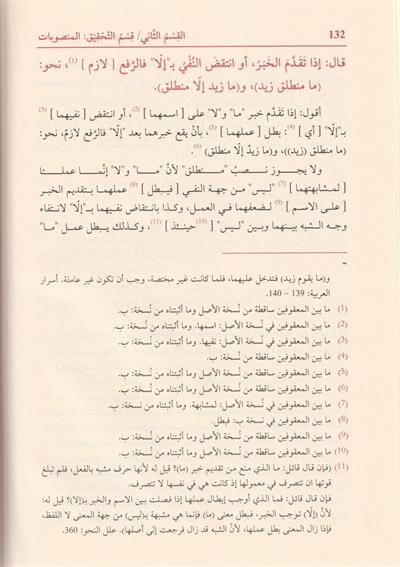 132
القِسْمُ الثَّاني/ قِسْمُ التَّحْقِيْق: المنصوبات
قال: إذا تَقَدَّمَ الخَبَرُ، أو انتقضَ النَّفْيُ بـ"إلّا" فالرَّفع [ لازم ](1)، نحو:
(ما منطلق زيد)، و(ما زيد إلّا منطلق).
أقول: إذا تَقَدَّم خبر "ما" و"لا" على [ اسمهما ](2)، أو انتقض [ نفيهما ](3)
بـ"إلّا" [ أي ](4): بطل [ عملهما ](5)، بأنْ يقع خبرهما بعد "إلّا" فالرَّفع لازمٌ، نحو:
(ما منطلق (زيد))، و(ما زيدٌ إلّا منطلق) (6).
ولا يجوز نصبُ "منطلق" لأنَّ "ما" و"لا" إنَّما عملتا
[ لمشابهتهما ](7) "ليس" من جهة النفي [ فيبطل ](8) عملهما بتقديم الخبر
[ على الاسم ](9) لضعفهما في العمل، وكذا بانتقاض نفيهما بـ"إلّا" لانتفاء
وجه الشبه بينهما وبين "ليس" [ حينئذ ](10) (11)، وكذلك يبطل عمل "ما"
=
و(ما يقوم زيد) فتدخل عليهما، فلما كانت غير مختصة، وجب أن تكون غير عاملة. أسرار
العربية: 139 - 140.
(1) ما بين المعقوفين ساقطة من نُسخة الأصل وما أثبتناه من نُسخة: ب.
(2) ما بين المعقوفين في نُسخة الأصل: اسمها. وما أثبتناه من نُسخة: ب.
(3) ما بين المعقوفين في نُسخة الأصل: نفيها. وما أثبتناه من نُسخة: ب.
(4) ما بين المعقوفين ساقطة من نُسخة: ب.
(5) ما بين المعقوفين ساقطة من نُسخة الأصل. وما أثبتناه من نُسخة: ب.
(6) ما بين المعقوفين ساقطة من نُسخة الأصل. وما أثبتناه من نُسخة: ب.
(7) ما بين المعقوفين في نُسخة الأصل: لمشابهة. وما أثبتناه من نُسخة: ب.
(8) ما بين المعقوفين في نسخة ب: فبطل.
(9) ما بين المعقوفين ساقطة من نُسخة الأصل. وما أثبتناه من نُسخة: ب.
(10) ما بين المعقوفين ساقطة من نُسخة الأصل. وما أثبتناه من نُسخة: ب.
(11) (فإن قال قائل: ما الذي منع من تقديم خبر (ما)؟ قيل له لأنها حرف مشبه بالفعل، فلم تبلغ
قوتها ان تتصرف في معمولها إذ كانت هي في نفسها لا تتصرف.
فإن قال قائل: فما الذي أوجب إبطال عملها إذا فصلت بين الاسم والخبر بـ(إلا)؟ قيل له:
لأنَّ (إلّا) توجب الخبر، فبطل معنى (ما) فإنما هي مشبهة بـ(ليس) من جهة المعنى لا اللفظ،
فإذا زال المعنى بطل عملها، لأنَّ الشبه قد زال فرجعت إلى أصلها). علل النحو: 360.